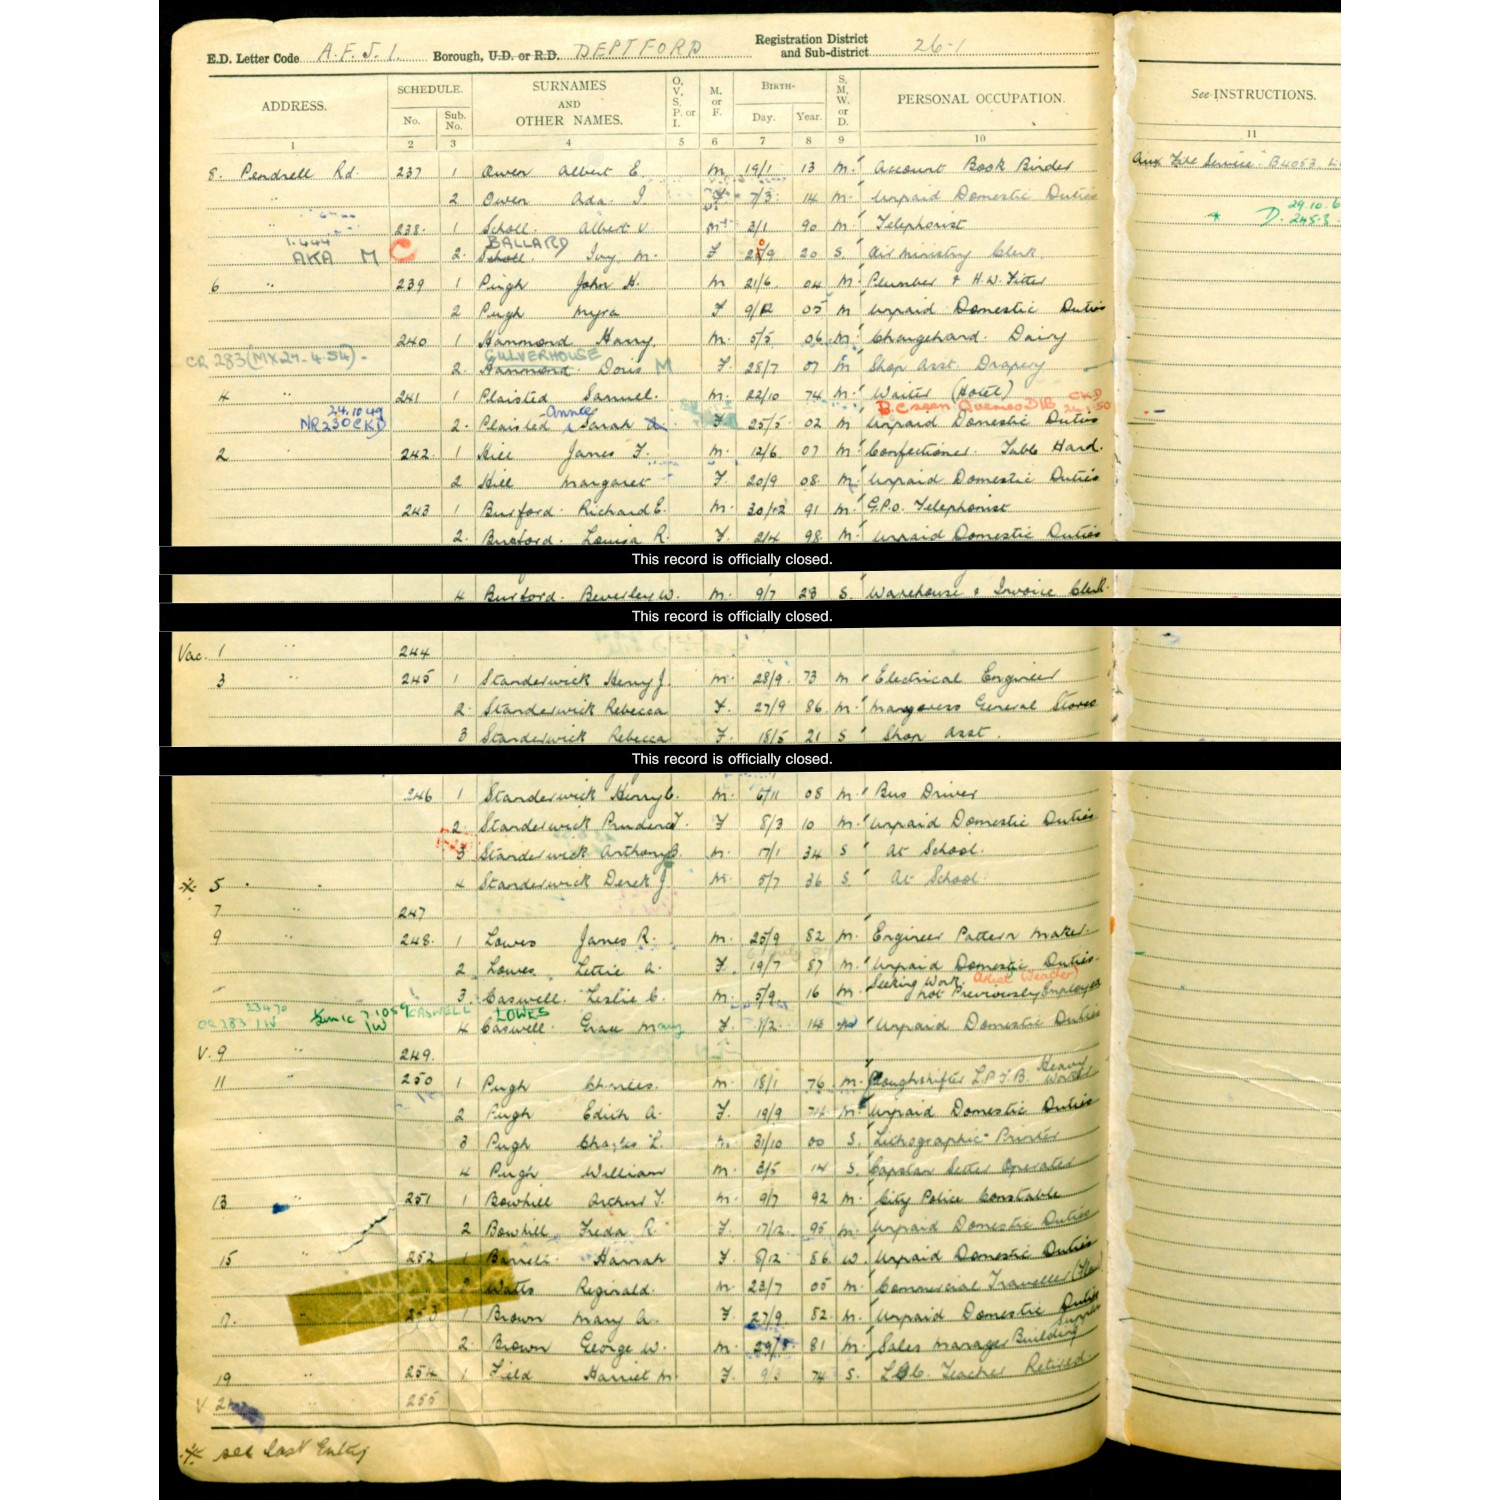 E.D. Letter Code A.F.J.1. Borough, U.D. or R.D. DEPTFORD Registration District and Sub-district 26-1
ADDRESS. SCHEDULE. No. Sub. No. SURNAMES AND OTHER NAMES. O, V, S, P, or I. M. or F. BIRTH- Day. Year. S, M, W, or D. PERSONAL OCCUPATION. See INSTRUCTIONS.
1 2 3 4 5 6 7 8 9 10 11
8. Pendrell Rd. 237 1 Owen Albert E. M. 19/1 13 M. Account Book Binder Aux Fire Service B4053
" 2 Owen Ada. I. F 7/3 14 M. Unpaid Domestic Duties
29.10.6
238. 1 Scholl. Albert V. M 2/1 90 M. Telephonist D. 245.3.
1.644 BALLARD
AKA M C 2. Scholl. Ivy. M. F 9 20 S. Air Ministry Clerk.
6 " 239 1 Pugh John H. M 21/6 04 M. Plumber & H.W. Fitter
2 Pugh Myra F 9/12 05 M Unpaid Domestic Duties
240 1 Hammond Harry. M. 5/5 06 M. Chargehand. Dairy
CR 283 (MX27-4-54) - CULVERHOUSE
2. Hammond. Doris M F. 28/7 07 M Shop Asst. Drapery
4 " 241 1 Plaisted Samuel. M. 22/10 74 M. Waiter (Hotel)
24.10.49 Annie CKD
NR230 CKD 2. Plaisted Sarah A. F. 25/5 02 M Unpaid Domestic Duties
2 " 242. 1 Hill James F. M. 12/6 07 M. Confectioner. Table Hand.
2 Hill Margaret F. 20/9 08. M. Unpaid Domestic Duties
243 1 Burford. Richard E. M. 30/12 91 M. G.P.O. Telephonist
2. Burford. Louisa R. F. 2/4 98. M. Unpaid Domestic Duties
This record is officially closed.
4 Burford. Beverley W. M. 9/7 23 S. Warehouse & Invoice Clerk.
This record is officially closed.
Vac. 1 " 244
3 " 245 1 Standerwick Henry J. M. 28/9. 73 M Electrical Engineer
2. Standerwick Rebecca F. 27/9 86. M. Manageress General Stores
3 Standerwick Rebecca F. 18/5 21 S Shop Asst.
This record is officially closed.
246 1 Standerwick Henry C. M. 6/11 08 M. Bus Driver
2. Standerwick Prudence F. F 8/3 10 M. Unpaid Domestic Duties
3 Standerwick Anthony B. M. 17/1 34 S At School.
※ 5 " 4 Standerwick Derek J. M. 5/7 36 S. At School.
7 247
9 " 248. 1 Lowes James R. M. 25/9 82 M. Engineer Pattern Maker.
2 Lowes Lettie A. F. 19/7 87 M. Unpaid Domestic Duties.
3. Caswell. Leslie C. M. 5/9. 16 M. Seeking Work. Not Previously Employed
23470 7.10.59 CASWELL LOWES
CR 283 IW IW 4 Caswell. Grace Mary F. 1/2. 14 Unpaid Domestic Duties
V. 9 " 249.
11 " 250 1 Pugh Charles. M. 18/1 76 M. Roughshifter L.P.T.B. Heavy Worker
2 Pugh Edith A. F. 19/9 74 M. Unpaid Domestic Duties
3 Pugh Charles L. M. 31/10 00 S. Lithographic Printer
4 Pugh William M. 3/5 14 S. Capstan Setter Operator
13 " 251 1 Bowhill Arthur T. M. 9/7 92 M. City Police Constable
2 Bowhill Freda R. F. 17/12. 95 M. Unpaid Domestic Duties
15 " 252 1 Hannah F. 8/12 86. W. Unpaid Domestic Duties
2 Watts Reginald. M. 23/7 05 M. Commercial Traveller
17. " 253 1 Brown Mary A. F. 27/9 82. M. Unpaid Domestic Duties
2. Brown George W. M. 29/8 81 M. Sales Manager Building
19 " 254 1 Field Harriet M F. 9/3 74 S. L.C.C. Teacher Retired
V 21 255
※ see last Entry